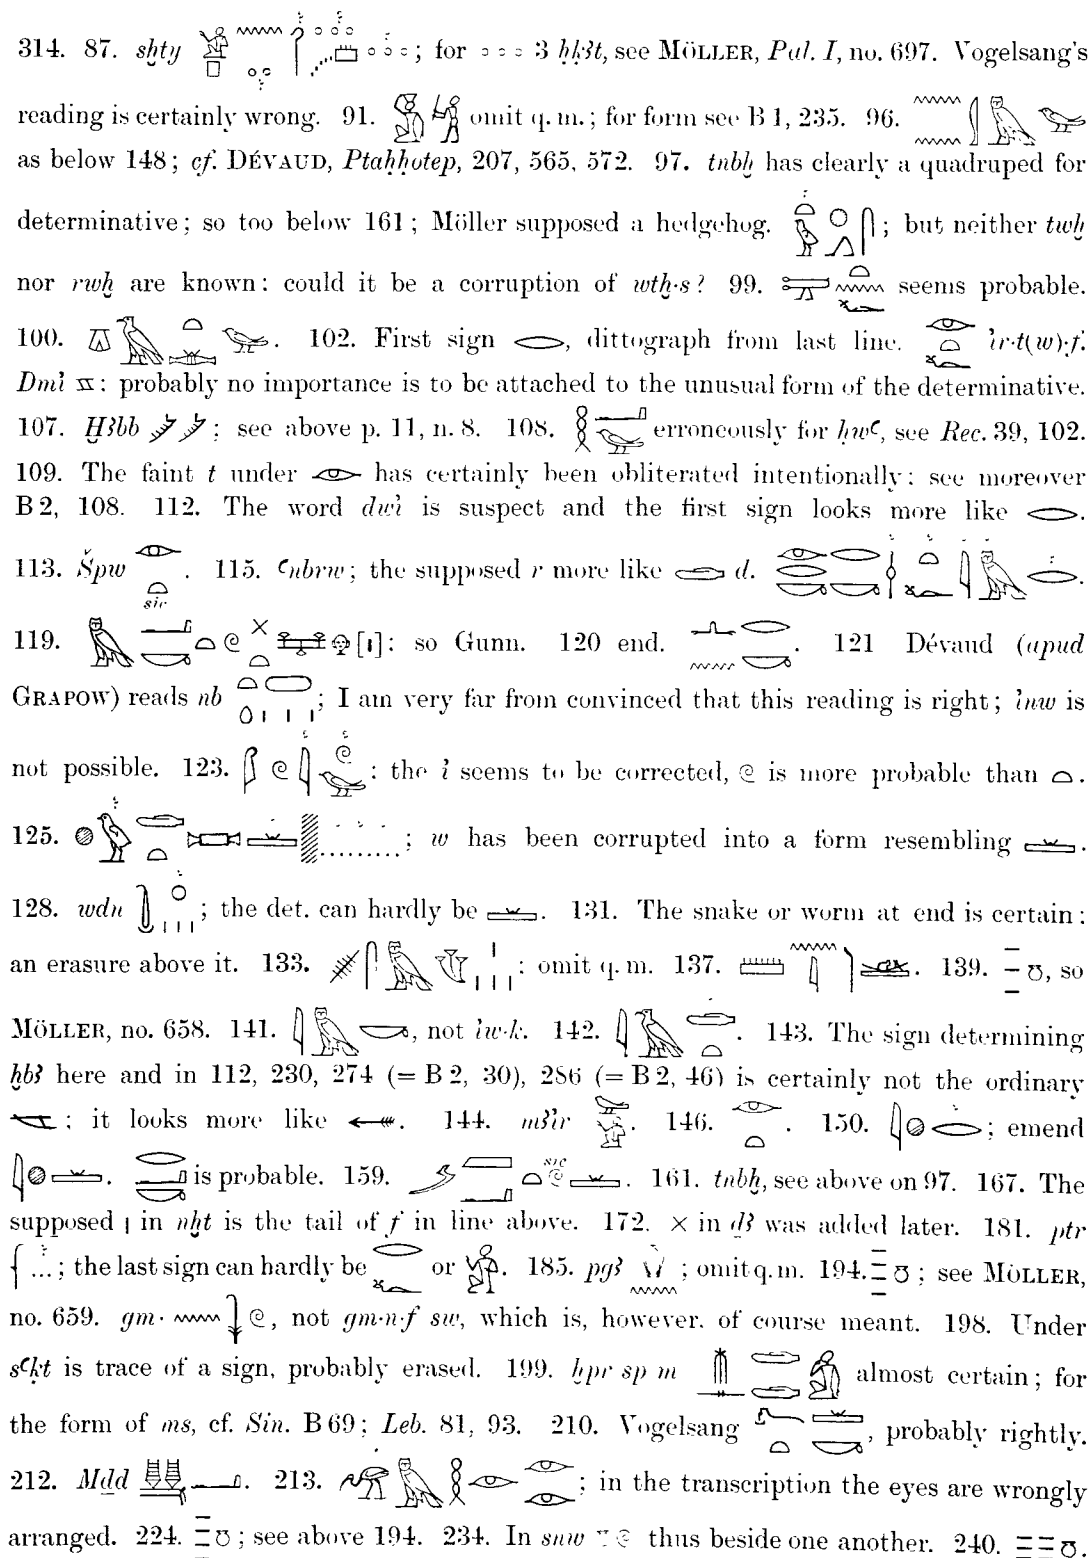 314. 87. sḫty ; for 3 ḥḳꜣt, see MÖLLER, Pal. I, no. 697. Vogelsang's
reading is certainly wrong. 91. omit q. m.; for form see B 1, 235. 96.
as below 148; cf. DÉVAUD, Ptaḥḥotep, 207, 565, 572. 97. tnbḫ has clearly a quadruped for
determinative; so too below 161; Möller supposed a hedgehog. ; but neither twḫ
nor rwḫ are known: could it be a corruption of wtḫ·s? 99. seems probable.
100. . 102. First sign , dittograph from last line. ỉr·t(w)·f.
Dmỉ : probably no importance is to be attached to the unusual form of the determinative.
107. H̱ꜣbb ; see above p. 11, n. 8. 108. erroneously for ḥwꜥ, see Rec. 39, 102.
109. The faint t under has certainly been obliterated intentionally; see moreover
B 2, 108. 112. The word dwỉ is suspect and the first sign looks more like .
113. Špw sic . 115. ꜥnbrw; the supposed r more like d. .
119. [ı]: so Gunn. 120 end. . 121 Dévaud (apud
GRAPOW) reads nb ; I am very far from convinced that this reading is right; ỉnw is
not possible. 123. : the ỉ seems to be corrected, is more probable than .
125. ......... ; w has been corrupted into a form resembling .
128. wdn ; the det. can hardly be . 131. The snake or worm at end is certain;
an erasure above it. 133. : omit q. m. 137. . 139. , so
MÖLLER, no. 658. 141. , not ỉw·k. 142. . 143. The sign determining
ḫbꜣ here and in 112, 230, 274 (= B 2, 30), 286 (= B 2, 46) is certainly not the ordinary
; it looks more like . 144. mꜣỉr . 146. . 150. ; emend
. is probable. 159. sic . 161. tnbḫ, see above on 97. 167. The
supposed ı in nḫt is the tail of f in line above. 172. × in ḏꜣ was added later. 181. ptr
...; the last sign can hardly be or . 185. pgꜣ ; omit q. m. 194. ; see MÖLLER,
no. 659. gm· , not gm·n·f sw, which is, however, of course meant. 198. Under
sꜥḳt is trace of a sign, probably erased. 199. ḫpr sp m almost certain; for
the form of ms, cf. Sin. B 69; Leb. 81, 93. 210. Vogelsang , probably rightly.
212. Mḏd . 213. ; in the transcription the eyes are wrongly
arranged. 224. ; see above 194. 234. In snw thus beside one another. 240. .